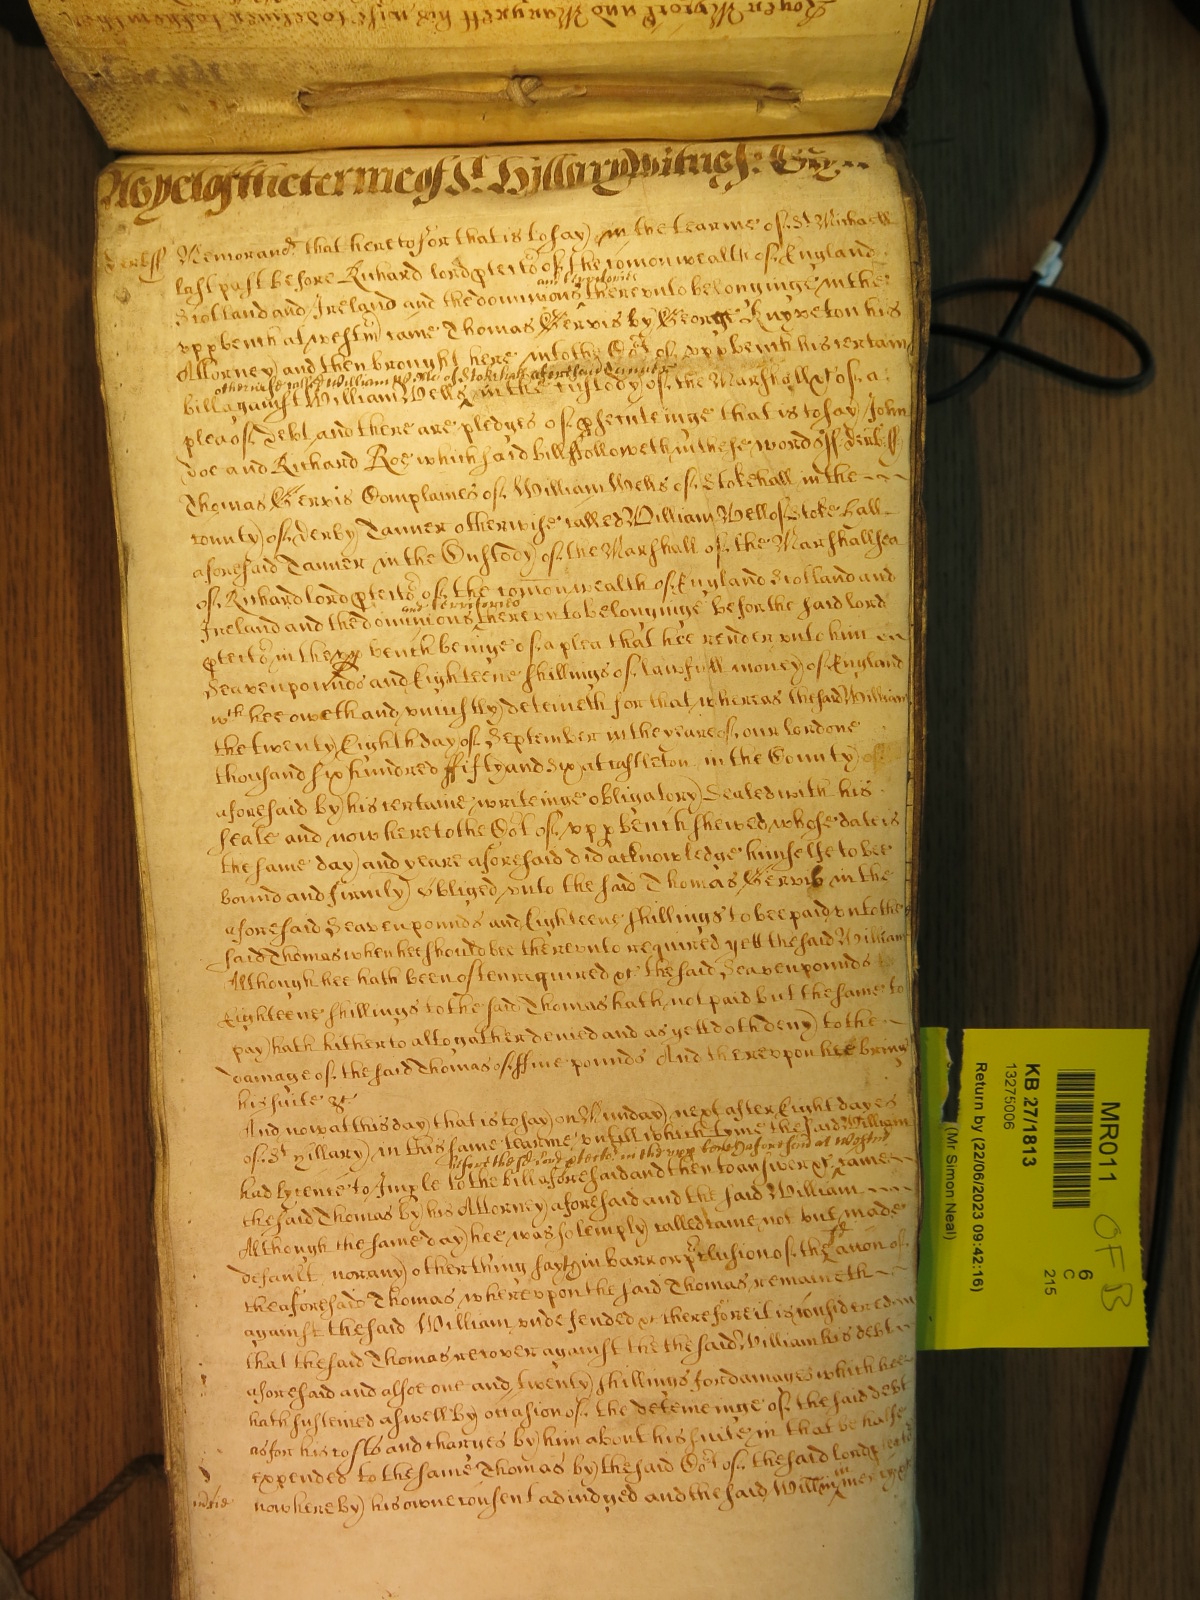 Roger and Margrett his wife
As yet of the terme of St Hillary witnes:
Derb ss Memorand that heretofor that is to say in the tearme of St Michaell
last past before Richard lord ptector of the comonwealth of England
Scotland and Ireland and the dominions and territories thereunto belonginge in the
upp bench at westm came Thomas Gervis by George Knyveton his
Attorney and then brought here into the Cort of upp bench his certain
bill against William Wells otherwise called William Wells of Stokehall aforesaid Tanner in the custody of the Marshall &c of a
plea of debt and there are pledges of psecuteinge that is to say John
Doe and Richard Roe which said bill followeth in these words ss Derb ss
Thomas Gervis Complaines of William Wells of Stokehall in the
county of Derby Tanner otherwise called William Wells of Stoke hall
aforesaid Tanner in the Custody of the Marshall of the Marshallsea
of Richard lord ptector of the comonwealth of England Scotland and
Ireland and the dominions and territories thereunto belonginge before the said lord
ptector in the upp bench beinge of a plea that hee render unto him
Seaven pounds and Eighteene shillings of lawfull money of England
wch hee oweth and uniustly deteineth for that whereas the said William
the twenty Eighth day of September in the yeare of our lord one
thousand six hundred ffifty and six at Castleton in the County of
aforesaid by his certaine writeinge obligatory Sealed with his
seale and now here to the Cort of upp bench shewed whose date is
the same day and yeare aforesaid did acknowledge himselfe to bee
bound and firmly obliged unto the said Thomas Gervis in the
aforesaid Seaven pounds and Eighteene shillings to bee paid unto the
said Thomas when hee should bee thereunto required yett the said William
Although hee hath been often required &c the said Seaven pounds
Eighteene shillings to the said Thomas hath not paid but the same to
pay hath hitherto altogather denied and as yett doth deny to the
damage of the said Thomas of ffive pounds And thereupon hee brings
his suite &c
And now at this day that is to say on Munday next after Eight dayes
of St Hillary in this same tearme untill which tyme the said William
had lycence to Imple to the bill aforesaid and then to answer &c before the sd lord ptector in the upp bench aforesaid at Westmr came
the said Thomas by his Attorney aforesaid and the said William
Although the same day hee was solemply called came not but made
default nor any other thing sayth in barr or pclusion of the acon of
the aforesaid Thomas whereupon the said Thomas remaineth
against the said William undefended &c therefore it is considered
that the said Thomas recover against the the said William his debt
aforesaid and alsoe one and twenty shillings for damages which hee
hath susteined aswell by occasion of the deteineinge of the said debt
as for his costs and charges by him about his suite in that behalfe
expended to the same Thomas by the said Cort of the said lord ptector
now here by his owne consent adiudged and the said William in mercy &c
MR011
KB 27/1813
13275006
Return by (22/06/2023 09:42:16)
(Mr Simon Neal)
6
C
215
OFB